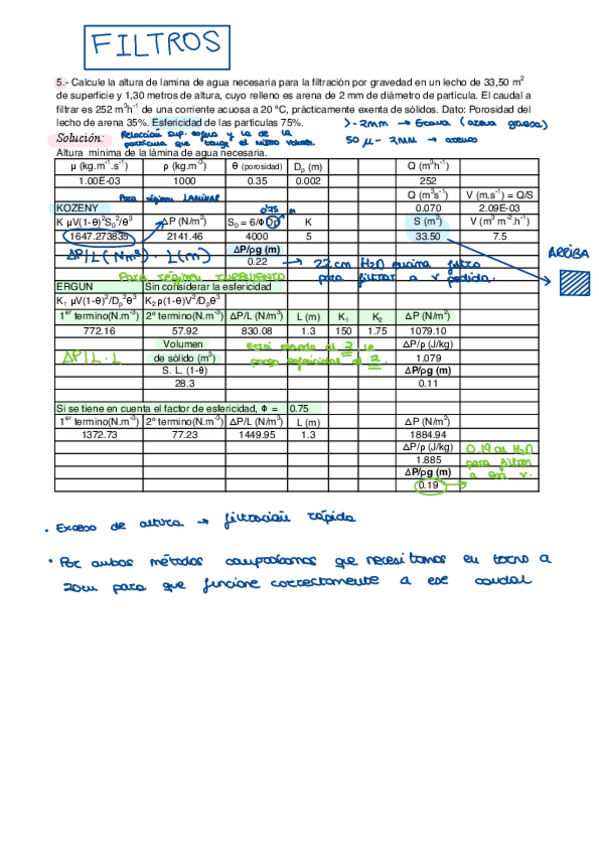 FILTROS
5.- Calcule la altura de lamina de agua necesaria para la filtración por gravedad en un lecho de 33,50 m²
de superficie y 1,30 metros de altura, cuyo relleno es arena de 2 mm de diámetro de partícula. El caudal a
filtrar es 252 m³h⁻¹ de una corriente acuosa a 20 ºC, prácticamente exenta de sólidos. Dato: Porosidad del
lecho de arena 35%. Esfericidad de las partículas 75%.
>-2mm → Grava (arena gruesa)
Solución:
Relación sup. esfera y la de la
partícula que tenga el mismo volumen.
50 μ - 2mm → arenas
Altura mínima de la lámina de agua necesaria.
μ (kg.m⁻¹.s⁻¹) ρ (kg.m⁻³) θ (porosidad) Dp (m) Q (m³h⁻¹)
1.00E-03 1000 0.35 0.002 252
Para régimen LAMINAR
Q (m³s⁻¹) V (m.s⁻¹) = Q/S
KOZENY 0.75 0.070 2.09E-03
K μV(1-θ)²S₀²/θ³ ΔP (N/m²) S₀ = 6/Φ Dp K S (m²) V (m³ m⁻².h⁻¹)
1647.273835 2141.46 4000 5 33.50 7.5
ΔP/L (N/m³) · L(m) ΔP/ρg (m)
0.22 → 22 cm H₂O encima filtro
para filtrar a v pedida.
ARRIBA
Para régimen TURBULENTO
ERGUN Sin considerar la esfericidad
K₁ μV(1-θ)²/Dp²θ³ K₂ρ(1-θ)V²/Dpθ³
1er termino(N.m⁻³) 2º termino(N.m⁻³) ΔP/L (N/m³) L (m) K₁ K₂ ΔP (N/m²)
772.16 57.92 830.08 1.3 150 1.75 1079.10
Volumen ΔP/ρ (J/kg)
ΔP/L · L de sólido (m³) 1.079
S. L. (1-θ) ΔP/ρg (m)
28.3 0.11
Si se tiene en cuenta el factor de esfericidad, Φ = 0.75
1er termino(N.m⁻³) 2º termino(N.m⁻³) ΔP/L (N/m³) L (m) ΔP (N/m²)
1372.73 77.23 1449.95 1.3 1884.94
ΔP/ρ (J/kg) 0.19 cm H₂O
1.885 para filtrar
ΔP/ρg (m) a esa v.
0.19
· Exceso de altura → filtración rápida
· Por ambos métodos comprobamos que necesitamos en torno a
20cm para que funcione correctamente a ese caudal